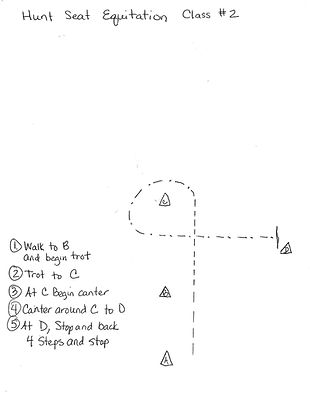 Hunt Seat Equitation Class #2
C
D
① Walk to B
and begin trot
② Trot to C
③ At C Begin canter
B
④ Canter around C to D
⑤ At D, Stop and back
4 Steps and stop
A